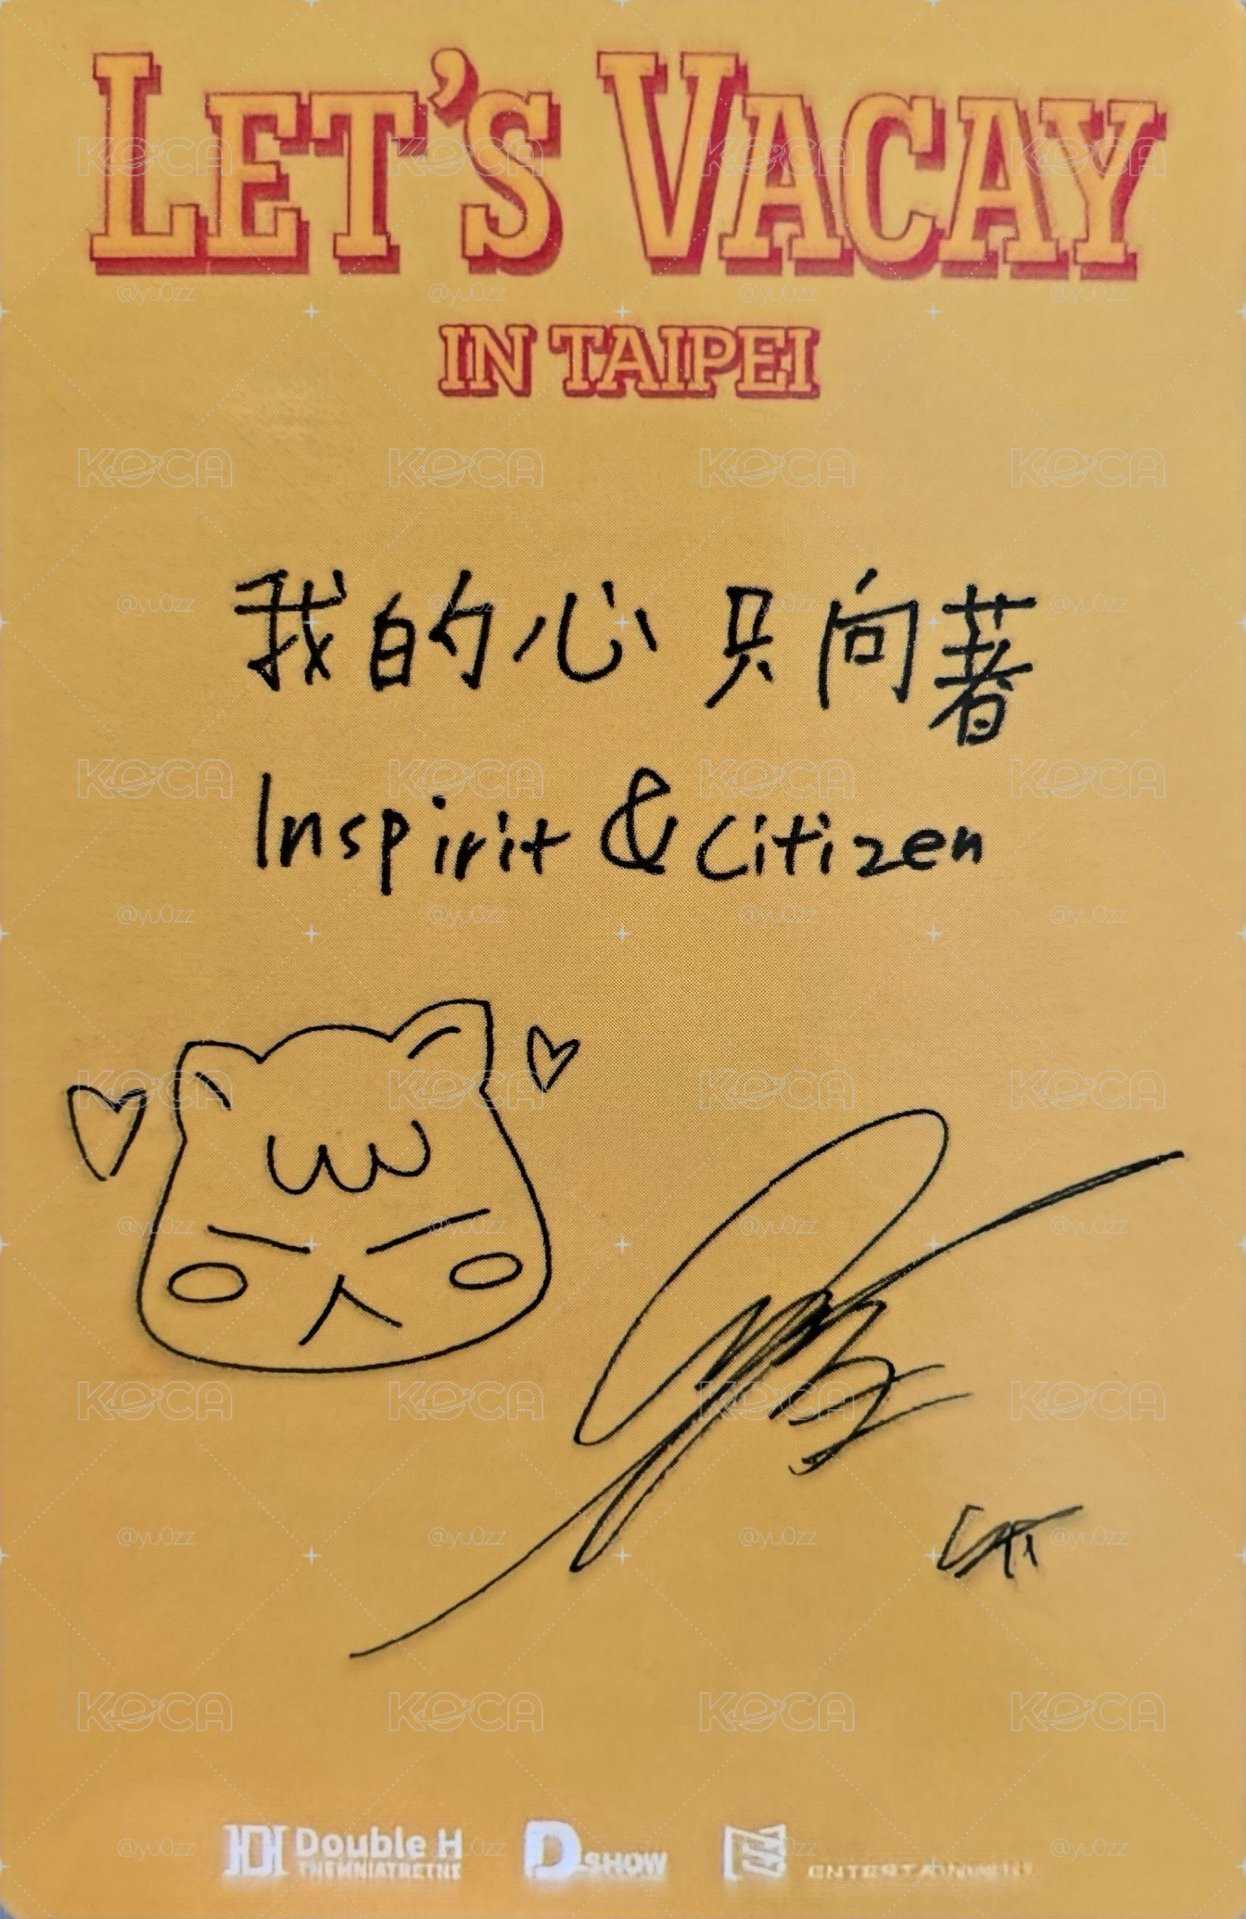 LET'S VACAY
IN TAIPEI
我的心只向著
Inspirit & Citizen
Double H
D.SHOW
ENTERTAINMENT
KOCA
@yu0zz